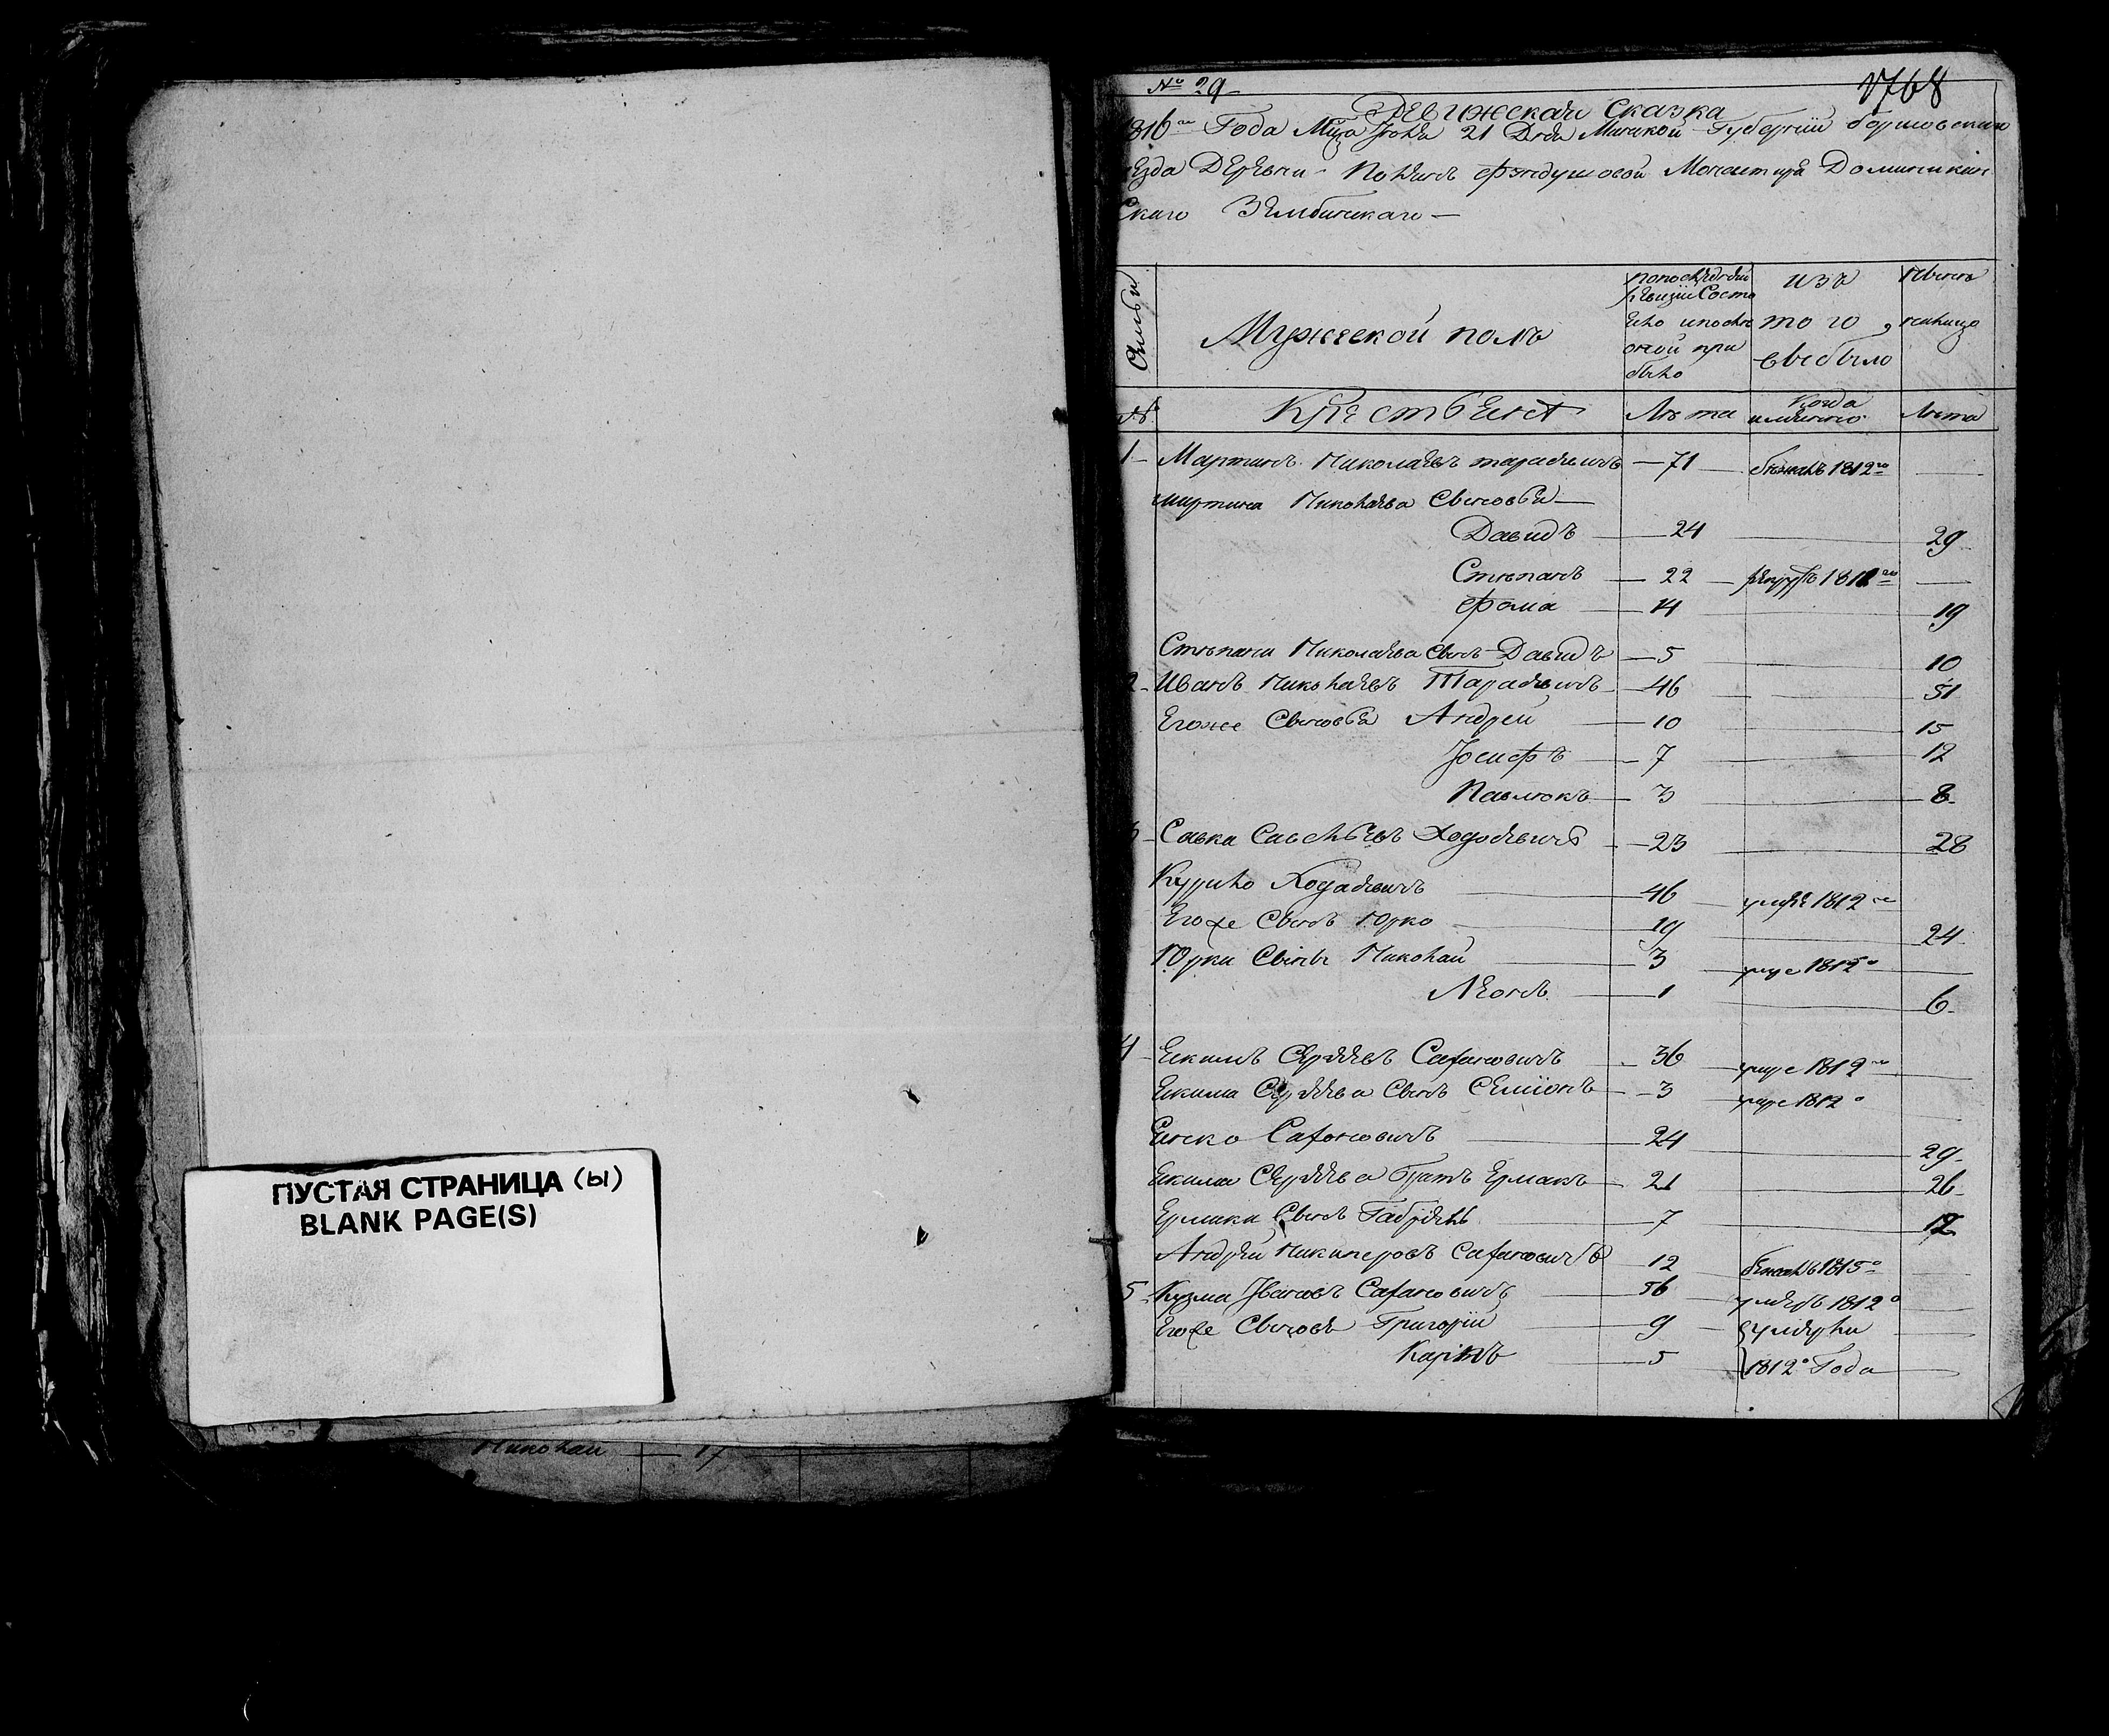 ПУСТАЯ СТРАНИЦА (ы)
BLANK PAGE(S)
Николай 17
№ 29
1768
Ревижская Сказка
1816го Года Мца Июня 21 Дня Минской Губернии Борисовскаго
уезда Деревни фондушовой Монастиря Доминикан
скаго Зембинскаго —
Мужеской полъ
по последней ревизии Состо
яло и после
оной при
было
изъ
того
выбыло
Ныне
налицо
№
Крестьяне
Лѣта
Когда
именно
Лѣта
1 Мартинъ Николаевъ Тарасевичъ 71 бежалъ 1812го
Мартина Николаева Сыновья
Давидъ 24 29
Стѣпанъ 22 рекрутъ
Фома 14 19
Стѣпана Николаева Сынъ Давидъ 5 10
2 Иванъ Николаевъ Тарасевичъ 46 51
Егоже Сыновья Андрей 10 15
Іосифъ 7 12
Павлюкъ 3 8
3 Савка Савельевъ Ходосевичъ 23 28
Курило Ходасевичъ 46 умре 1812го
Егоже Сынъ Юрко 19 24
Юрки Сыны Николай 3 умре 1812о
Леонъ 1 6
4 Екимъ Сергеевъ Сафановичъ 36 умре 1812го
Екима Сергеева Сынъ Семионъ 3 умре 1812о
Сафоновичъ 24 29
Екима Сергеева Братъ Ермакъ 21 26
Ермака Сынъ Габріель 7 12
Андрей Никипоровъ Сафановичъ 12 бежалъ 1815о
5 Кузма Ивановъ Сафановичъ 56 умеръ 1812о
Егоже Сыновья Григорій 9 умерли
5 1812о Года